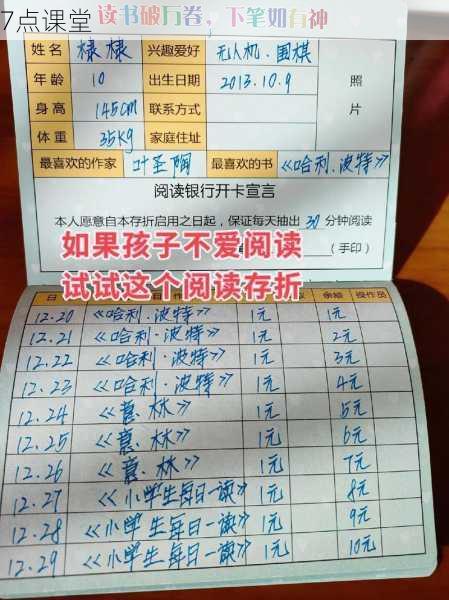 7点课堂
读书破万卷，下笔如有神
姓名 棣棣 兴趣爱好 无人机、围棋
年龄 10 出生日期 2013.10.9 照
身高 145cm 联系方式 片
体重 35kg 家庭住址
最喜欢的作家 叶圣陶 最喜欢的书 《哈利·波特》
阅读银行开卡宣言
本人愿意自本存折启用之日起，保证每天抽出 30 分钟阅读
（手印）
如果孩子不爱阅读
试试这个阅读存折
日 余额 操作员
12.20 《哈利·波特》 1元 1元
12.21 《哈利·波特》 1元 2元
12.22 《哈利·波特》 1元 3元
12.23 《哈利·波特》 1元 4元
12.24 《意林》 1元 5元
12.25 《意林》 1元 6元
12.26 《意林》 1元 7元
12.27 《小学生每日一读》 1元 8元
12.28 《小学生每日一读》 1元 9元
12.29 《小学生每日一读》 1元 10元